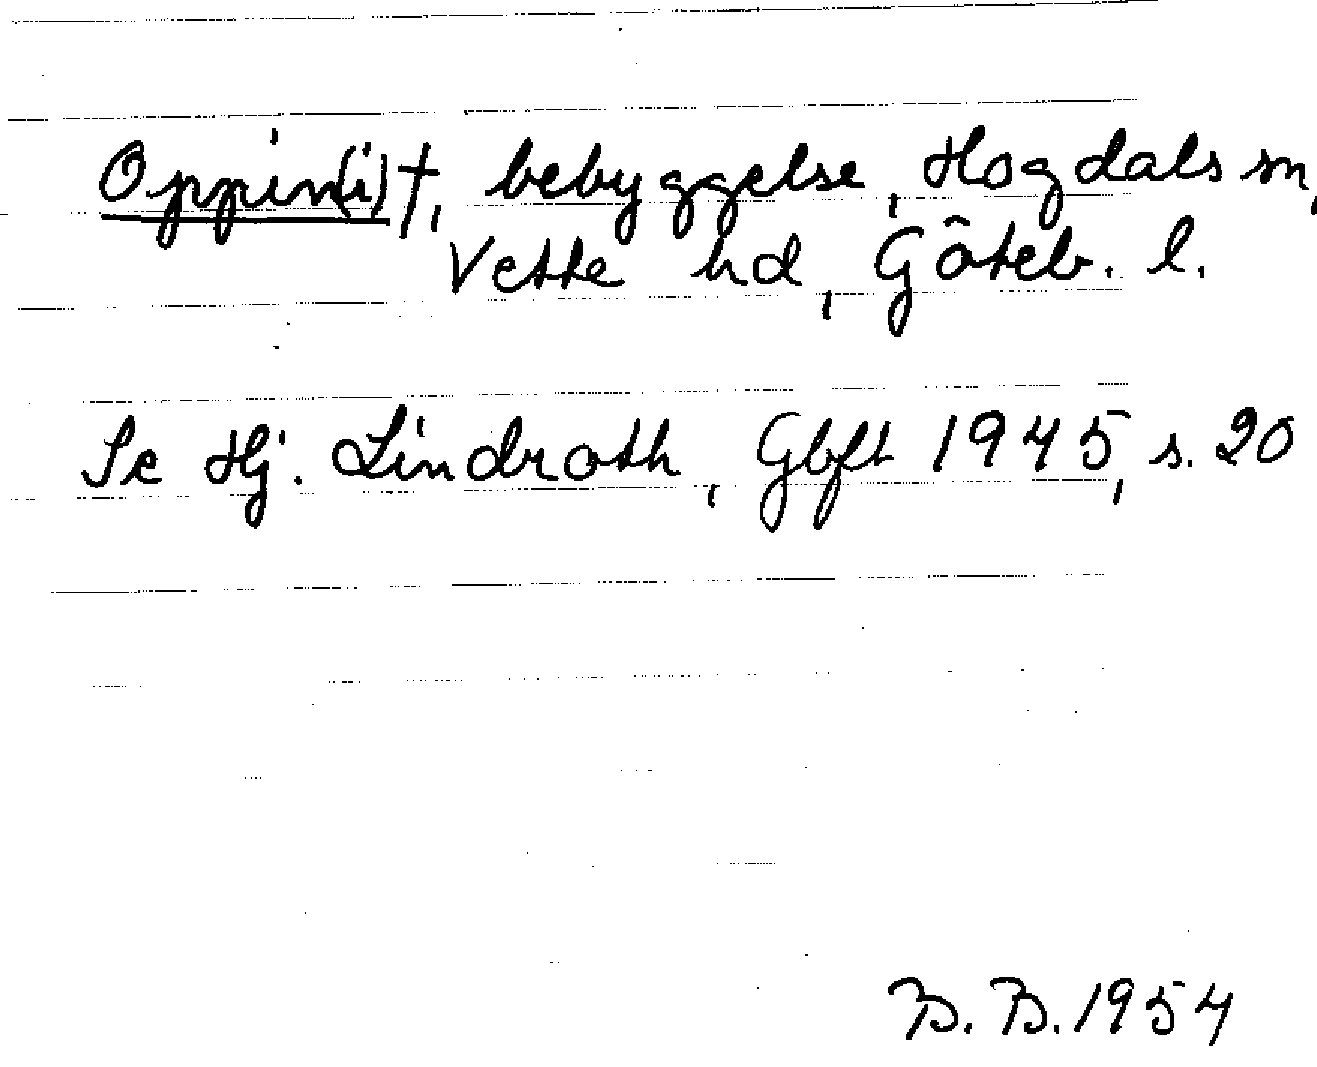 Oppin(i)†, bebyggelse, Hogdals sn,
Vette hd, Göteb. l.
Se Hj. Lindroth, Gbft 1945, s. 20
B. B. 1954